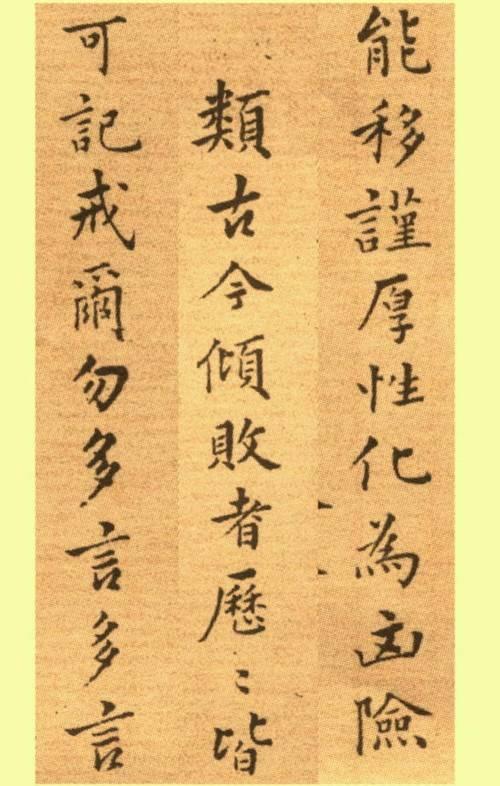 能移謹厚性化為凶險
類古今傾敗者歷〻皆
可記戒爾勿多言多言